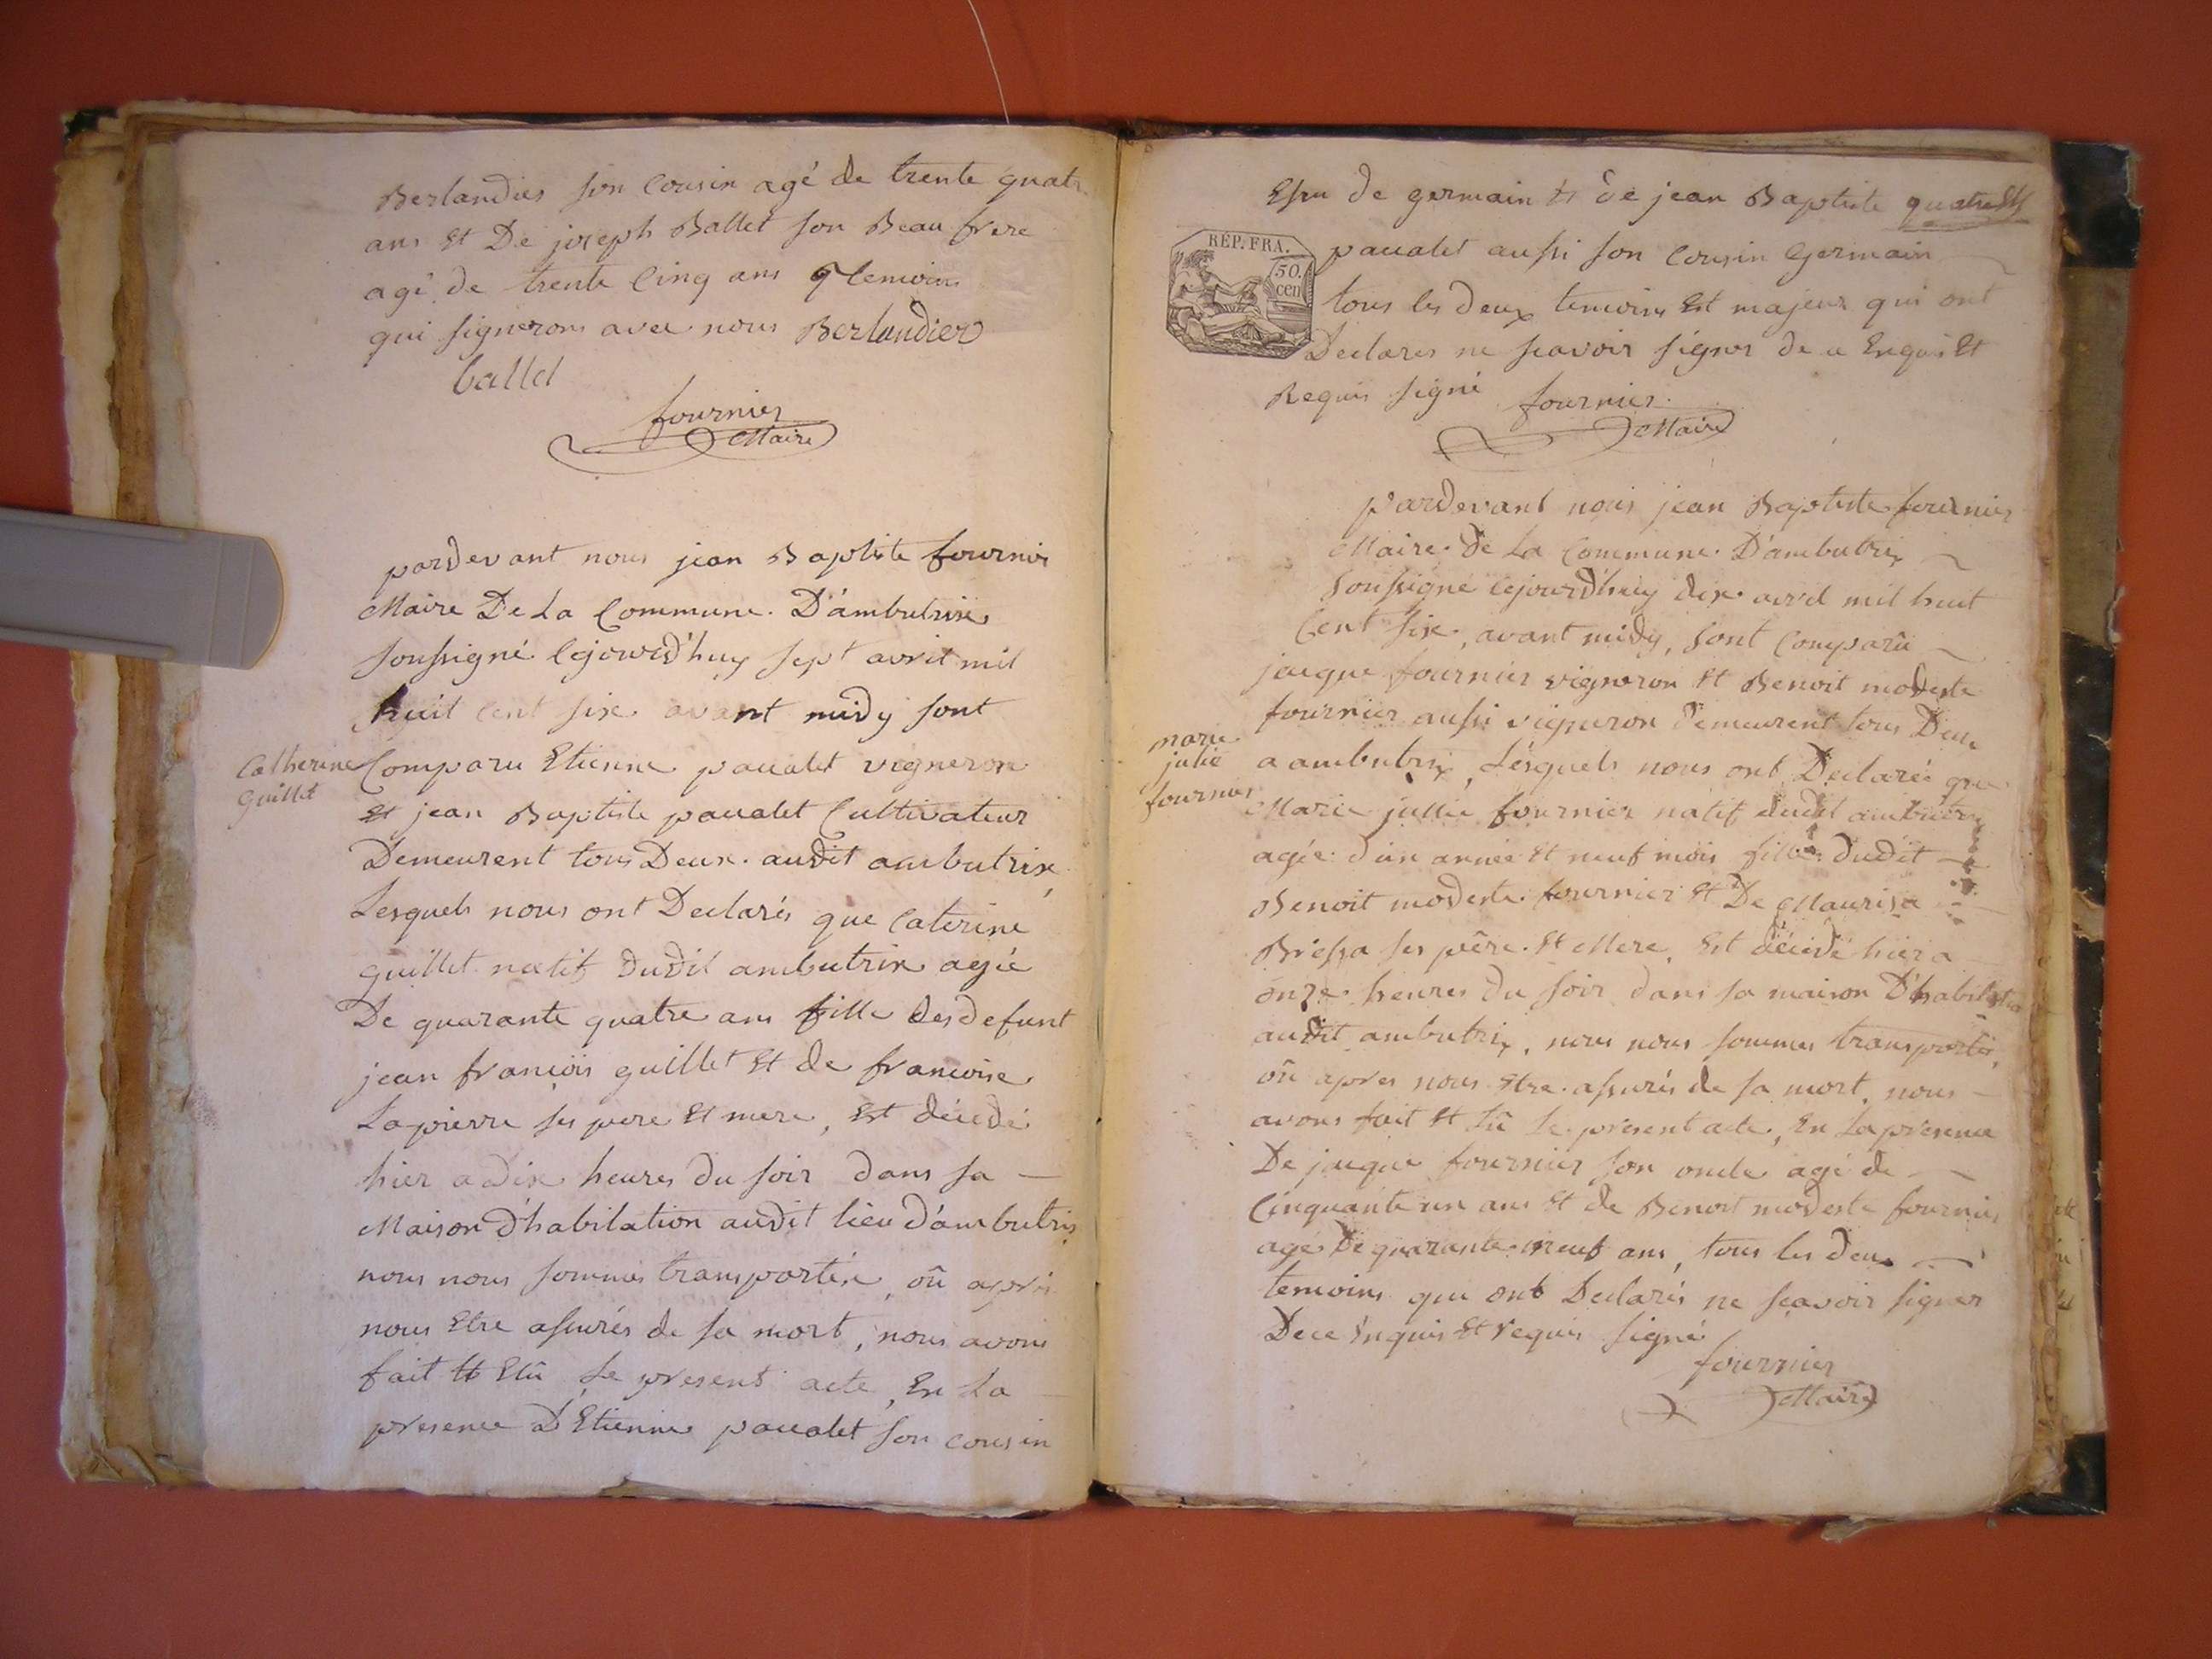 Berlandier son Cousin agé de trente quatre
ans Et De joseph Ballet son Beau frere
agé de trente Cinq ans temoins
qui signerons avec nous Berlandier
ballet
fournier
Maire
pardevant nous jean Baptiste fournier
Maire De La Commune D'ambutrix
soussigné Cejourd'huy sept avril mil
huit Cent six avant midy sont
Catherine
Guillet
Comparu Etienne pacalet vigneron
Et jean Baptiste pacalet Cultivateur
Demeurent tous Deux audit ambutrix
Lesquels nous ont Declarés que Caterine
guillet natif Dudit ambutrix agée
De quarante quatre ans fille des defunt
jean françois guillet Et de francoise
Lapierre ses pere Et mere, Est décédé
hier a dix heures du soir dans sa
Maison d'habitation audit lieu d'ambutrix
nous nous sommes transportés, oû après
nous Etre assurés de sa mort, nous avons
fait Et Lû Le present acte, En La
presence D'Etienne pacalet son cousin
Essu de germain Et de jean Baptiste
RÉP. FRA.
50.
cen
pacalet aussi son Cousin Germain
tous les deux temoins Et majeur qui ont
Declarés ne scavoir signer de ce Enquis Et
Requis signé fournier
Maire
pardevant nous jean Baptiste fournier
Maire De La Commune D'ambutrix
Soussigné Cejourd'huy dix avril mil huit
Cent six, avant midy, sont Comparû
jacque fournier vigneron Et Benoit modeste
fournier aussi vigneron Demeurent tous Deux
marie
julie
fournier
a ambutrix, Lésquels nous ont Declaréé que
Marie jullie fournier natif dudit ambutrix
agée d'un année Et neuf mois fille dudit
Benoit modeste fournier Et De Maurisa
Bressa ses pêre Et Mere, Est décédé hier a
onze heures du soir dans sa maison D'habitation
audit ambutrix, nous nous sommes transportés,
oû apres nous Etre assurés de sa mort, nous
avons fait Et Lû Le present acte, En La presence
De jacque fournier son oncle agé de
Cinquante un ans Et de Benoit modeste fournier
agé De quarante neuf ans, tous les deux
temoins qui ont Declarés ne sçavoir signer
De ce Enquis Et requis signé
fournier
Maire